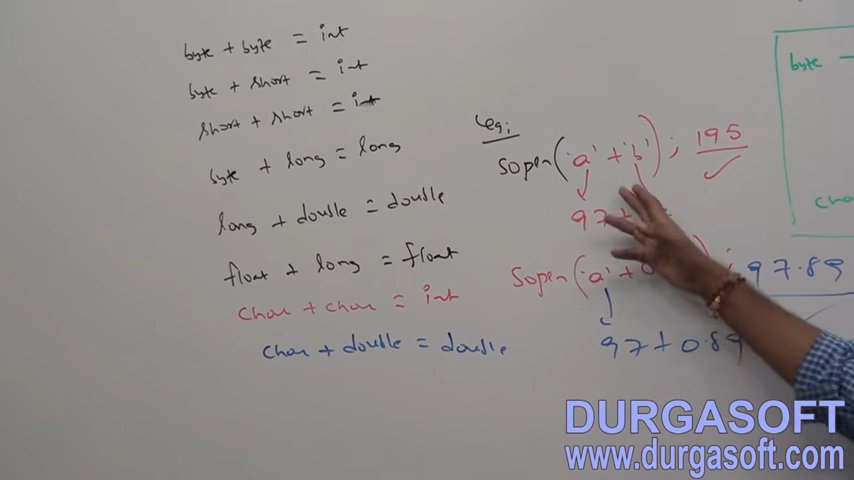 byte + byte = int
byte + short = int
short + short = int
byte + long = long
long + double = double
float + long = float
char + char = int
char + double = double
eg:
Sopln('a' + 'b'); 195
97 +
Sopln('a' + 0 ); 97.89
97 + 0.89
byte -
char
DURGASOFT
www.durgasoft.com